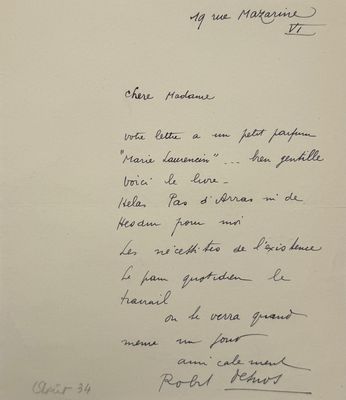 19 rue Mazarine
VI
chere Madame
votre lettre a un petit parfum
"Marie Laurencin"... bien gentille
Voici le livre -
Helas Pas d'Arras ni de
Hesdin pour moi
Les nécessites de l'existence
Le pain quotidien le
travail
on le verra quand
meme un jour
amicalement
Robert Desnos
34